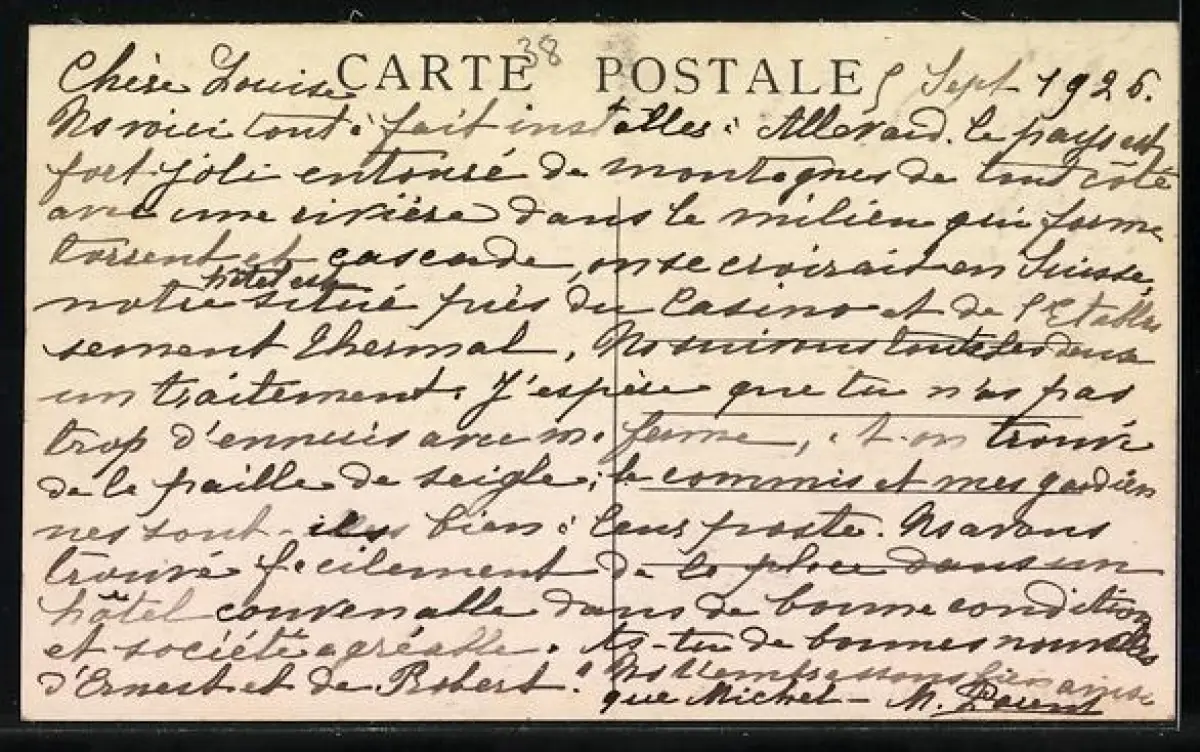 38
CARTE POSTALE
5 Sept 1926.
Chère Louise
Ns voici tout à fait installés à Allevard. le pays est
fort joli entouré de montagnes de tout côté
avec une rivière dans le milieu qui forme
torrent et cascade, on se croirait en Suisse,
notre hôtel est situé près du Casino et de l'Etablis
sement Thermal, Ns suivons toutes les deux
un traitement. J'espère que tu n'as pas
trop d'ennuis avec ma ferme, a-t-on trouvé
de la paille de seigle; le commis et mes gardien
nes sont-ils bien à leur poste. Ns avons
trouvé facilement de la place dans un
hôtel convenable dans de bonne condition
et société agréable. As-tu de bonnes nouvelles
d'Ernest et de Robert. Ns t'embrassons bien ainsi
que Michel - M. Parent